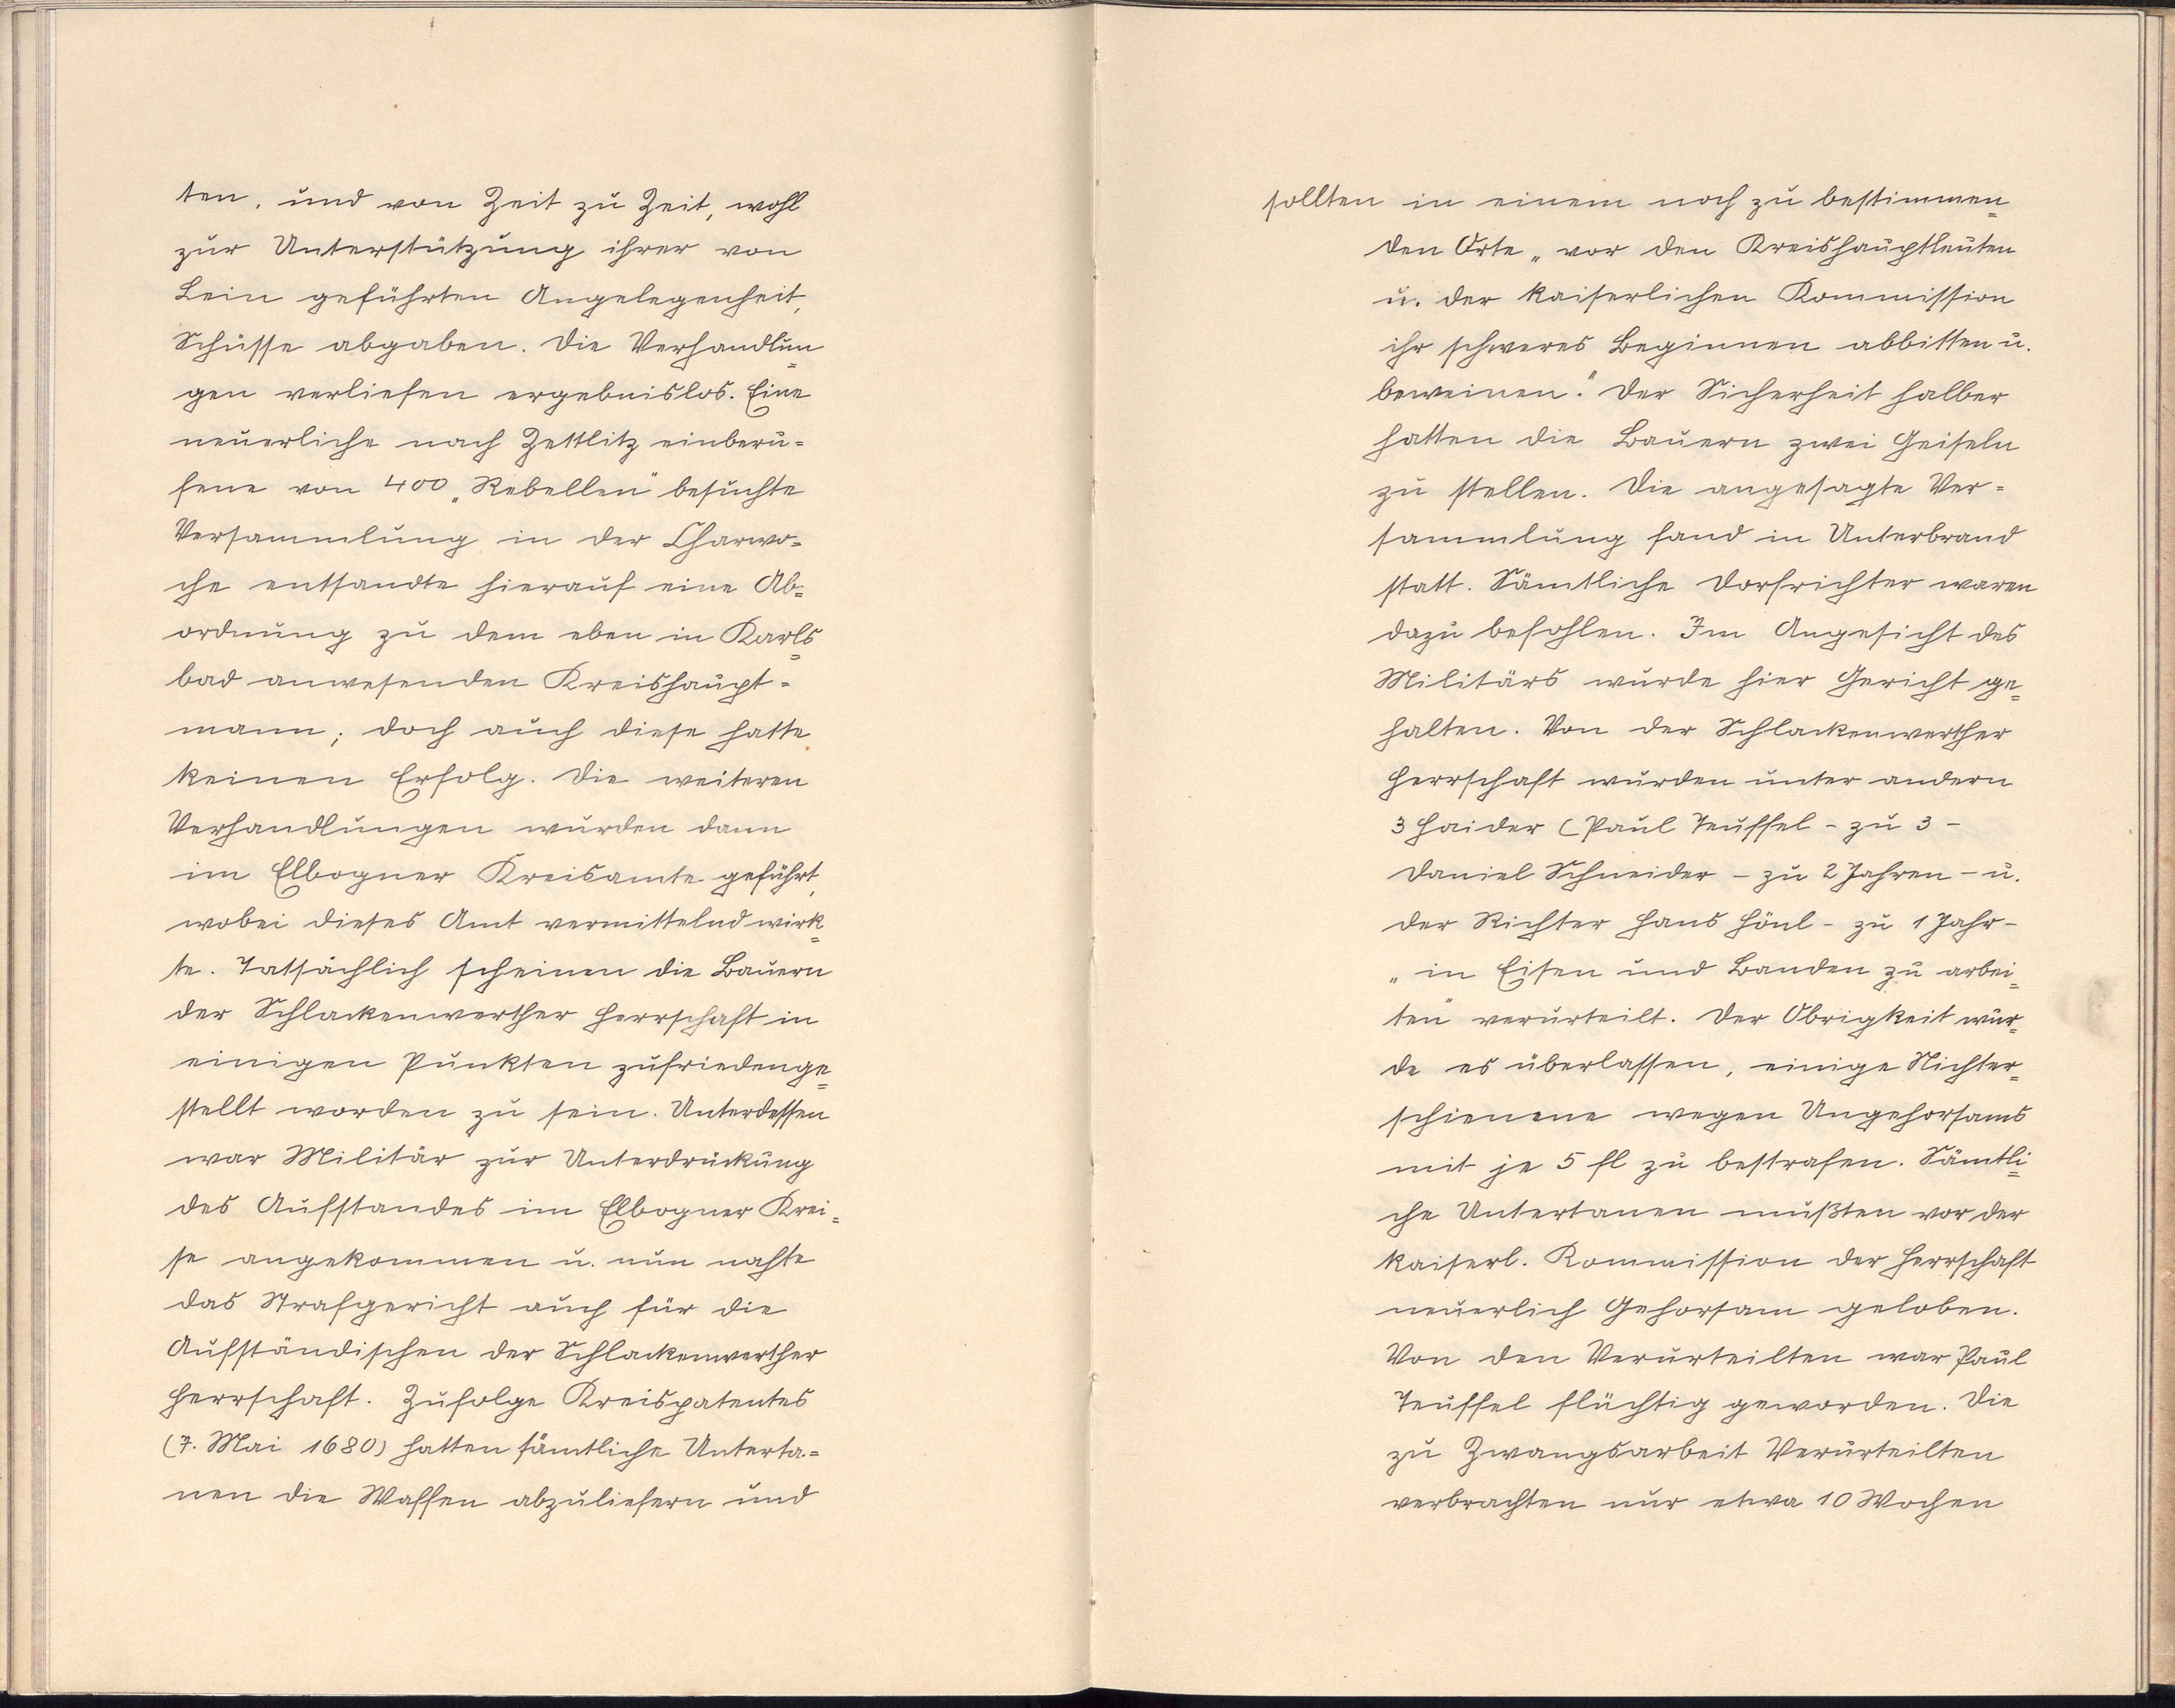 ten, und von Zeit zu Zeit, wohl
zur Unterstützung ihrer von
Lein geführten Angelegenheit,
Schüsse abgaben. Die Verhandlun=
gen verliefen ergebnislos. Eine
neuerliche nach Zettlitz einberu=
fene von 400 „Rebellen" besuchte
Versammlung in der Charwo=
che entsandte hierauf eine Ab=
ordnung zu dem eben in Karls=
bad anwesenden Kreishaupt=
mann; doch auch diese hatte
keinen Erfolg. Die weiteren
Verhandlungen wurden dann
im Elbogner Kreisamte geführt,
wobei dieses Amt vermittelnd wirk=
te. Tatsächlich scheinen die Bauern
der Schlackenwerther Herrschaft in
einigen Punkten zufriedenge=
stellt worden zu sein. Unterdessen
war Militär zur Unterdrückung
des Aufstandes im Elbogner Krei=
se angekommen u. nun nahte
das Strafgericht auch für die
Aufständischen der Schlackenwerther
Herrschaft. Zufolge Kreispatentes
(7. Mai 1680) hatten sämtliche Unterta=
nen die Waffen abzuliefern und
sollten in einem noch zu bestimmen=
den Orte „vor den Kreishauptleuten
u. der kaiserlichen Kommission
ihr schweres Beginnen abbitten u.
beweinen." Der Sicherheit halber
hatten die Bauern zwei Geiseln
zu stellen. Die angesagte Ver=
sammlung fand in Unterbrand
statt. Sämtliche Dorfrichter waren
dazu befohlen. Im Angesicht des
Militärs wurde hier Gericht ge=
halten. Von der Schlackenwerther
Herrschaft wurden unter andern
3 Haider (Paul Teuffel - zu 3 -
Daniel Schneider - zu 2 Jahren - u.
der Richter Hans Hönl - zu 1 Jahr -
„in Eisen und Banden zu arbei=
ten" verurteilt. Der Obrigkeit wur=
de es überlassen, einige Nichter=
schienene wegen Ungehorsams
mit je 5 fl zu bestrafen. Sämtli=
che Untertanen mußten vor der
kaiserl. Kommission der Herrschaft
neuerlich Gehorsam geloben.
Von den Verurteilten war Paul
Teuffel flüchtig geworden. Die
zu Zwangsarbeit Verurteilten
verbrachten nur etwa 10 Wochen